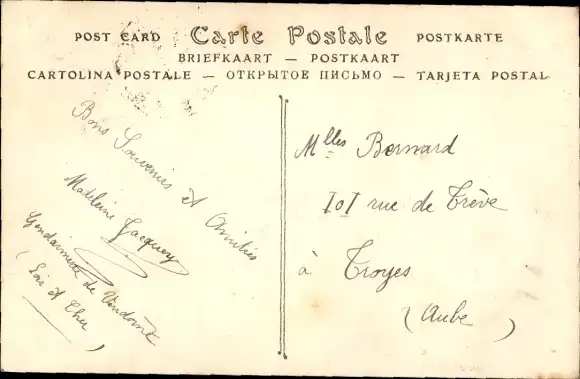 POST CARD Carte Postale POSTKARTE
BRIEFKAART — POSTKAART
CARTOLINA POSTALE — ОТКРЫТОЕ ПИСЬМО — TARJETA POSTAL
Bons Souvenirs et Amitiés
Madeleine Jacquey
Gendarmerie de Vendôme
(Loir et Cher)
Mlles Bernard
101 rue de Trève
à Troyes
(Aube)